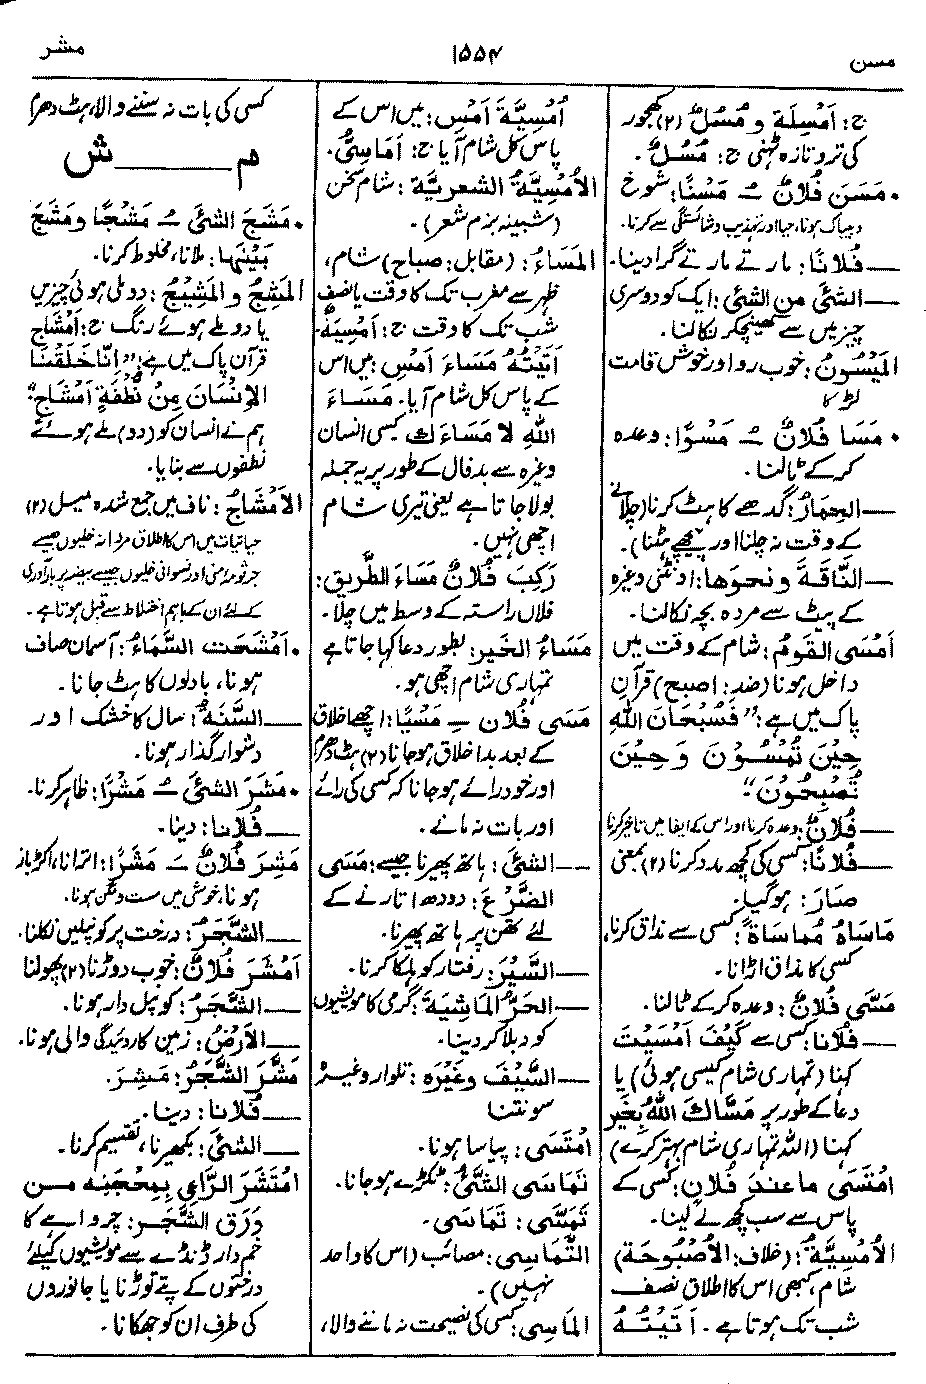 مسن
۱۵۵۴
مشر
ج: اَمْسِلَة و مُسُلٌ (۲) کھجور
کی تروتازہ ٹہنی ج: مُسُلٌ۔
• مَسَنَ فُلَانٌ ـُ مَسْنًا: شوخ
وبیباک ہونا، حیا اور تہذیب وشائستگی سے کرنا۔
— فُلَانًا: مارتے مارتے گرا دینا۔
— الشئَ مِن الشئ: ایک کو دوسری
چیز میں سے کھینچکر نکالنا۔
المَيْسُونُ: خوب رو اور خوش قامت
لڑکا
• مَسَا فُلَانٌ ـُ مَسْوًا: وعدہ
کرکے ٹالنا۔
— الحِمَارُ: گدھے کا ہٹ کرنا (چلانے
کے وقت نہ چلنا اور پیچھے ہٹنا)۔
— النَّاقَةَ ونحوَها: اونٹنی وغیرہ
کے پیٹ سے مردہ بچہ نکالنا۔
اَمْسَى القَومُ: شام کے وقت میں
داخل ہونا (ضد: اصبح) قرآن
پاک میں ہے: "فَسُبْحَانَ اللهِ
حِيْنَ تُمْسُوْنَ وَحِيْنَ
تُصْبِحُوْنَ"
— فُلَانٌ: وعدہ کرنا اور اس کے ایفا میں تاخیر کرنا
— فُلَانًا: کسی کی کچھ مدد کرنا (۲) بمعنی
صَارَ: ہوگیا۔
مَاسَاهُ مُمَاسَاةً: کسی سے مذاق کرنا،
کسی کا مذاق اڑانا۔
مَسَّى فُلَانٌ: وعدہ کرکے ٹالنا۔
— فُلَانًا: کسی سے كَيْفَ اَمْسَيْتَ
کہنا (تمہاری شام کیسی ہوئی) یا
دعا کے طور پر مَسَّاكَ اللهُ بِخَيْرٍ
کہنا (اللہ تمہاری شام بہتر کرے)
امْتَسَى مَا عِندَ فُلَانٍ: کسی کے
پاس سے سب کچھ لے لینا۔
الأُمْسِيَّةُ: (خلاف: الأُصْبُوحَة)
شام، کبھی اس کا اطلاق نصف
شب تک ہوتا ہے۔ اَتَيْتُهُ
اُمْسِيَّةَ اَمْسِ: میں اس کے
پاس کل شام آیا ج: اَمَاسِيُّ۔
الأُمْسِيَّةُ الشعرِيَّة: شام سخن
(شبینہ بزم شعر)۔
المَسَاءُ: (مقابل: صباح) شام،
ظہر سے مغرب تک کا وقت یا نصف
شب تک کا وقت ج: اَمْسِيَةٌ۔
اَتَيْتُهُ مَسَاءَ اَمْسِ: میں اس
کے پاس کل شام آیا۔ مَسَاءَ
اللهِ لا مَسَاءَكَ کسی انسان
وغیرہ سے بدفال کے طور پر یہ جملہ
بولا جاتا ہے یعنی تیری شام
اچھی نہیں۔
رَكِبَ فُلَانٌ مَسَاءَ الطَّرِيقِ:
فلاں راستہ کے وسط میں چلا۔
مَسَاءُ الخَير: بطور دعا کہا جاتا ہے
تمہاری شام اچھی ہو۔
مَسَى فُلَان ـِ مَسْيًا: اچھے اخلاق
کے بعد بد اخلاق ہو جانا (۲) ہٹ دھرم
اور خود رائے ہو جانا کہ کسی کی رائے
اور بات نہ مانے۔
— الشئَ: ہاتھ پھیرنا جیسے: مَسَى
الضَّرْعَ: دودھ اتارنے کے
لئے تھن پر ہاتھ پھیرنا۔
— السَّيْرَ: رفتار کو ہلکا کرنا۔
— الحَرُّ المَاشِيَةَ: گرمی کا مویشیوں
کو دبلا کر دینا۔
— السَّيْفَ وَغَيْرَه: تلوار وغیرہ
سونتنا
امْتَسَى: پیاسا ہونا۔
تَمَاسَى الشَّئُ: ٹکڑے ہو جانا۔
تَمَسَّى: تَمَاسَى۔
التَّمَاسِى: مصائب (اس کا واحد
نہیں)۔
المَاسِى: کسی کی نصیحت نہ ماننے والا،
کسی کی بات نہ سننے والا، ہٹ دھرم
م ——— ش
• مَشَجَ الشئَ ـُ مَشْجًا ومَشَجَ
بَيْنَهَا: ملانا، مخلوط کرنا۔
المَشِجُ و المَشِيْجُ: دو ملی ہوئی چیزیں
یا دو ملے ہوئے رنگ ج: اَمْشَاج
قرآن پاک میں ہے: "اِنَّا خَلَقْنَا
الإنْسَانَ مِنْ نُطْفَةٍ اَمْشَاجٍ"
ہم نے انسان کو (دو) ملے ہوئے
نطفوں سے بنایا۔
الأمْشَاجُ: ناف میں جمع شدہ میل (۲)
حیاتیات میں اس کا اطلاق مردانہ خلیوں جیسے
جرثومہ منی اور نسوانی خلیوں جیسے بیضہ پر بارآوری
کے لئے ان کے باہم اختلاط سے قبل ہوتا ہے۔
• اَمْشَحَت السَّمَاءُ: آسمان صاف
ہونا، بادلوں کا ہٹ جانا۔
— السَّنَةُ: سال کا خشک اور
دشوار گذار ہونا۔
• مَشَرَ الشئَ ـُ مَشْرًا: ظاہر کرنا۔
— فُلَانًا: دینا۔
مَشِرَ فُلَانٌ ـَ مَشَرًا: اترانا، اکڑباز
ہونا، خوشی میں مست ومگن ہونا۔
— الشَّجَرُ: درخت پر کونپلیں نکلنا۔
اَمْشَرَ فُلَانٌ: خوب دوڑنا (۲) پھولنا
— الشَّجَرُ: کوپل دار ہونا۔
— الأرْضُ: زمین کا روئیدگی والی ہونا۔
مَشَّرَ الشَّجَرُ: مَشِرَ۔
— فُلَانًا: دینا۔
— الشئَ: بکھیرنا، تقسیم کرنا۔
امْتَشَرَ الرَّاعِي بِمِحْجَنِه مِن
وَرَقِ الشَّجَرِ: چرواہے کا
خم دار ڈنڈے سے مویشیوں کیلئے
درختوں کے پتے توڑنا یا جانوروں
کی طرف ان کو جھکانا۔